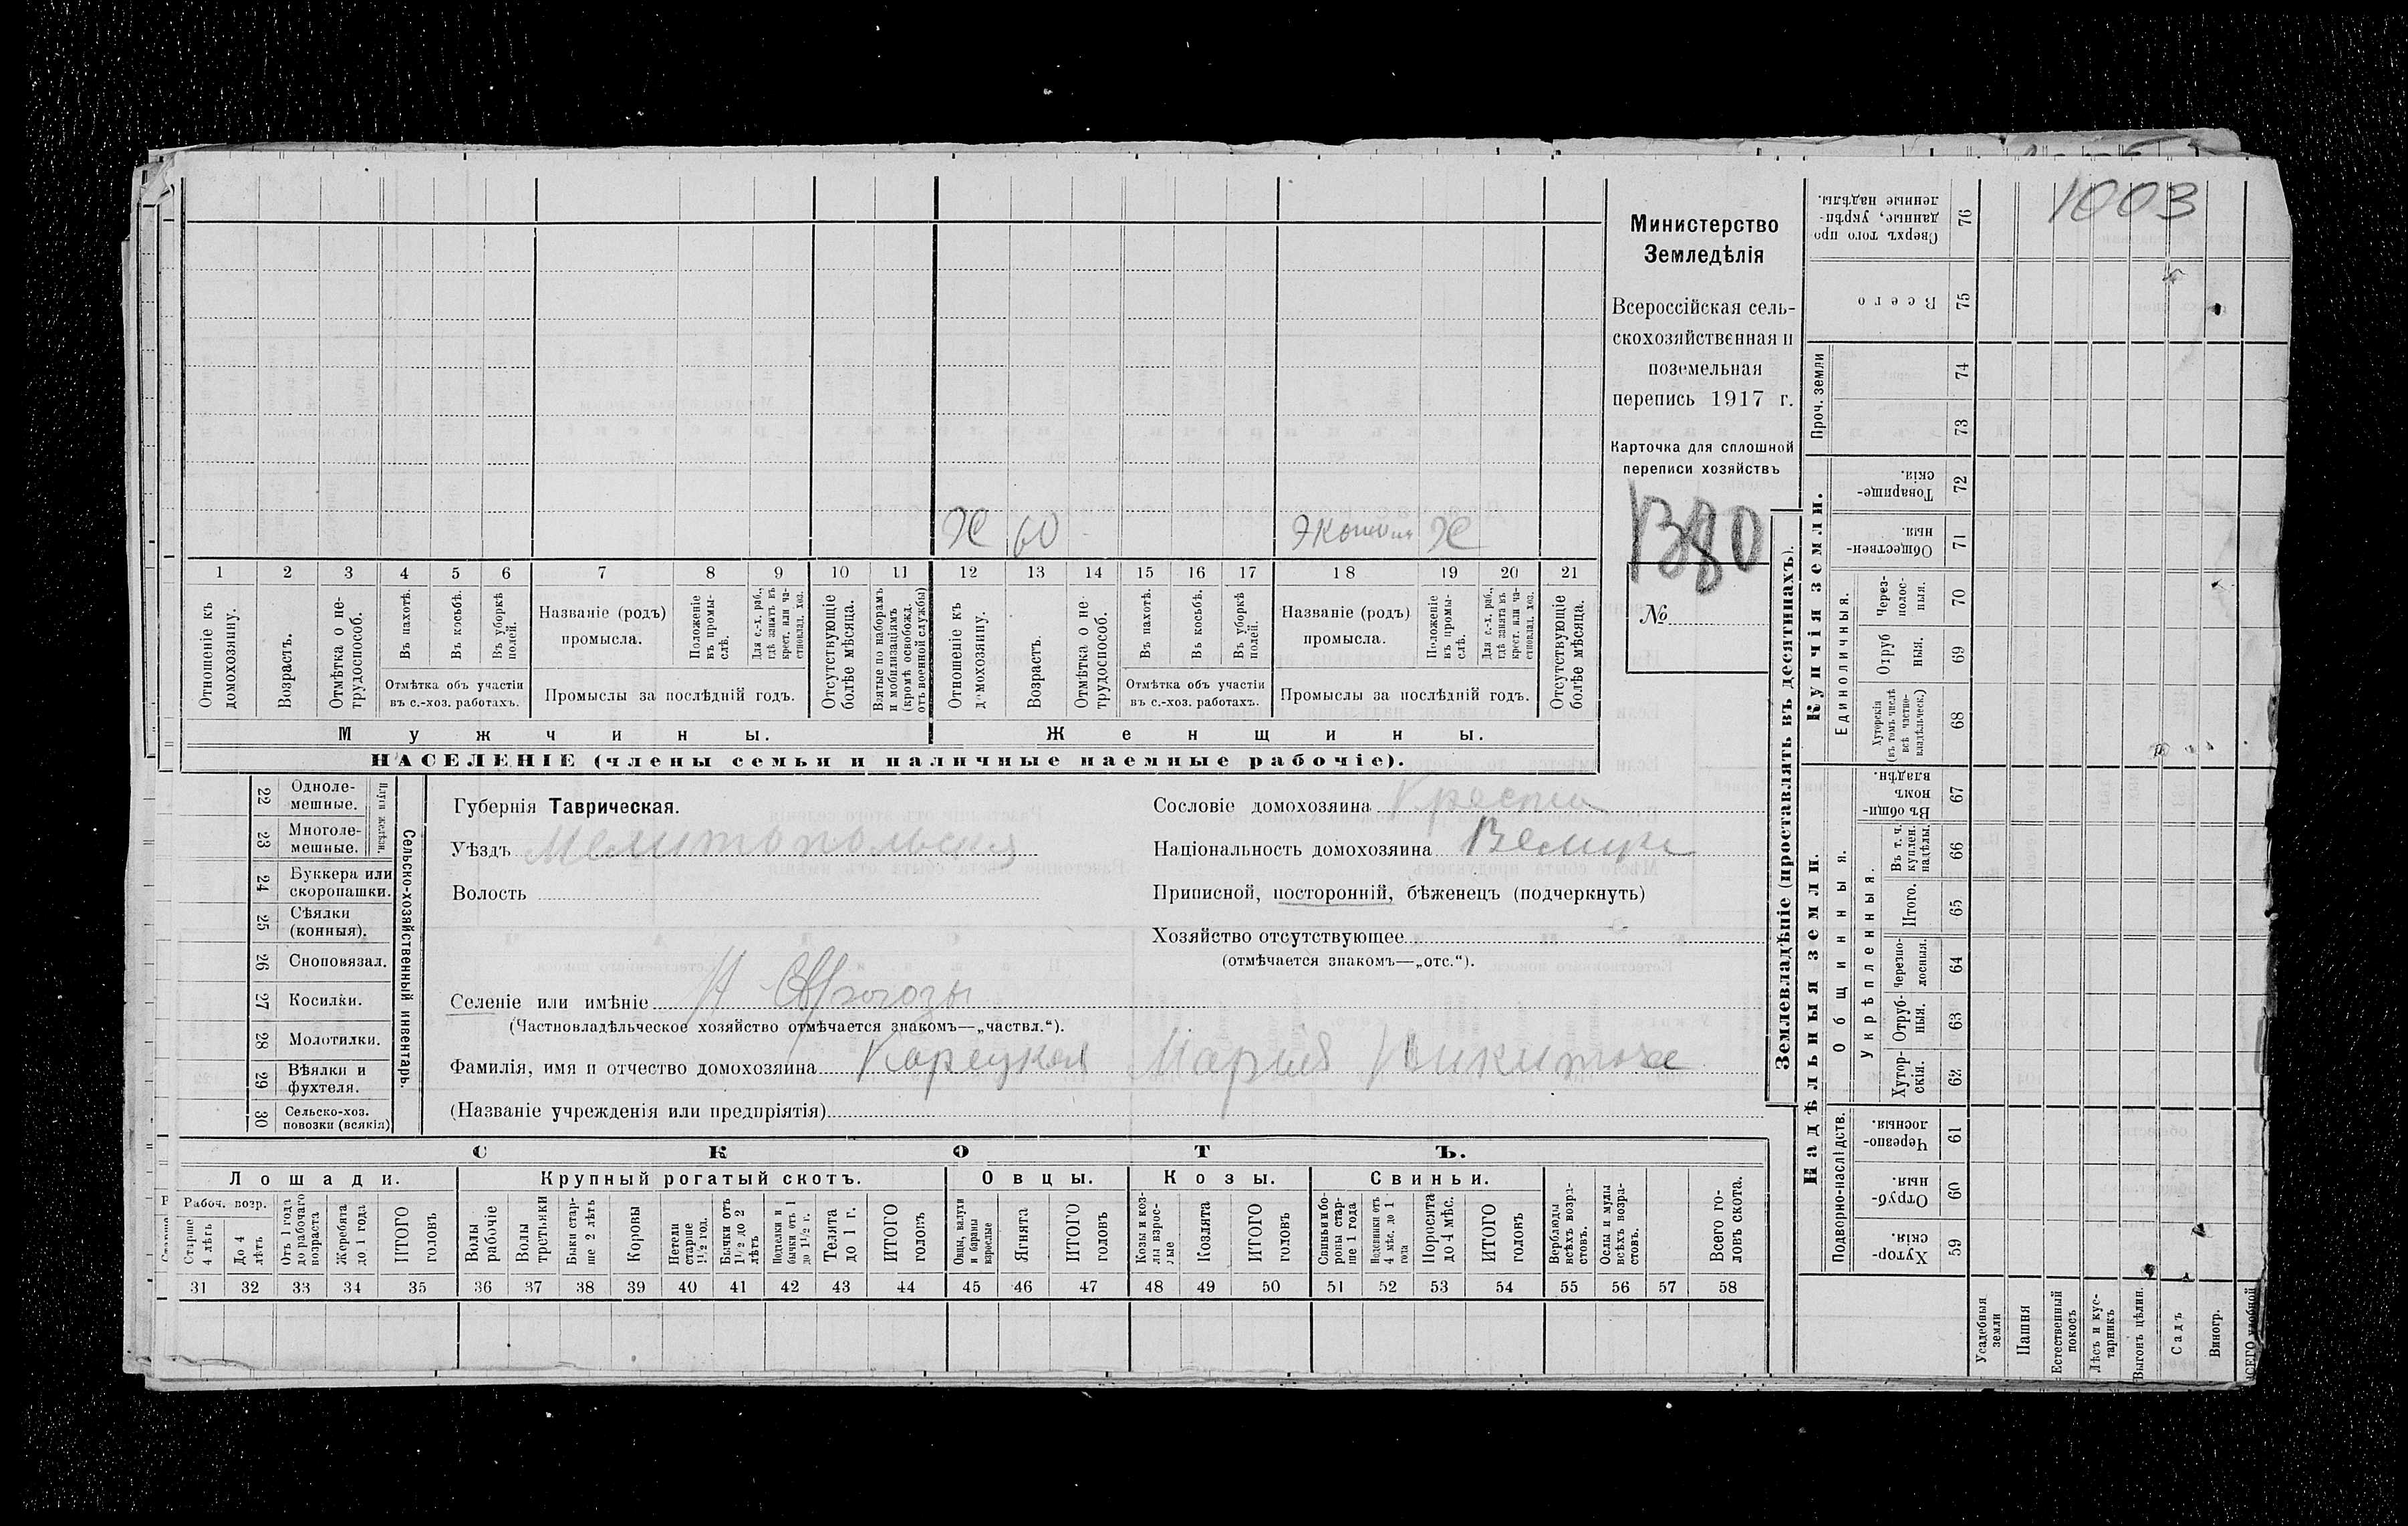 1003
Министерство
Земледѣлія
Всероссійская сель-
скохозяйственная и
поземельная
перепись 1917 г.
Карточка для сплошной
переписи хозяйствъ
1380
№
Х 60 Экономія Х
1 2 3 4 5 6 7 8 9 10 11 12 13 14 15 16 17 18 19 20 21
Отношеніе къ домохозяину.
Возрастъ.
Отмѣтка о не-трудоспособ.
Въ пахотѣ.
Въ косьбѣ.
Въ уборкѣ полей.
Отмѣтка объ участіи
въ с.-хоз. работахъ.
Названіе (родъ)
промысла.
Положеніе въ промы-слѣ.
Для с.-х. раб., гдѣ занятъ въ крест. или ча-стновлад. хоз.
Промыслы за послѣдній годъ.
Отсутствующіе болѣе мѣсяца.
Взятые по наборамъ и мобилизаціямъ (кромѣ освобожд. отъ военной службы)
Отношеніе къ домохозяину.
Возрастъ.
Отмѣтка о не трудоспособ.
Въ пахотѣ.
Въ косьбѣ.
Въ уборкѣ полей.
Отмѣтка объ участіи
въ с.-хоз. работахъ.
Названіе (родъ)
промысла.
Положеніе въ промы-слѣ.
Для с.-х. раб., гдѣ занятъ въ крест. или ча-стновлад. хоз.
Промыслы за послѣдній годъ.
Отсутствующіе болѣе мѣсяца.
Мужчины. Женщины.
НАСЕЛЕНІЕ (члены семьи и наличные наемные рабочіе).
Сельско-хозяйственный инвентарь.
Плуги желѣзн.
22 Одноле-мешные.
23 Многоле-мешные.
24 Буккера или скоропашки.
25 Сѣялки (конныя).
26 Сноповязал.
27 Косилки.
28 Молотилки.
29 Вѣялки и фухтеля.
30 Сельско-хоз. повозки (всякія)
Губернія Таврическая.
Уѣздъ Мелитопольскія
Волость
Сословіе домохозяина
Національность домохозяина
Приписной, посторонній, бѣженецъ (подчеркнуть)
Хозяйство отсутствующее
(отмѣчается знакомъ—„отс.“).
Селеніе или имѣніе Н
(Частновладѣльческое хозяйство отмѣчается знакомъ—„частвл.“).
Фамилія, имя и отчество домохозяина Корецкая Марія
(Названіе учрежденія или предпріятія)
СКОТЪ.
Лошади. Крупный рогатый скотъ. Овцы. Козы. Свиньи.
Рабоч. возр.
Старше 4 лѣтъ
До 4 лѣтъ
Отъ 1 года до рабочаго возраста
Жеребята до 1 года
ИТОГО головъ
Волы рабочіе
Волы третьяки
Быки стар-ше 2 лѣтъ
Коровы
Нетели старше 1½ год.
Бычки отъ 1½ до 2 лѣтъ
Подтелки и бычки отъ 1 до 1½ г.
Телята до 1 г.
ИТОГО головъ
Овцы, валухи и бараны взрослые
Ягнята
ИТОГО головъ
Козы и коз-лы взрос-лые
Козлята
ИТОГО головъ
Свиньи и бо-ровы стар-ше 1 года
Подсвинки отъ 4 мѣс. до 1 года
Поросята до 4 мѣс.
ИТОГО головъ
Верблюды всѣхъ возра-стовъ.
Ослы и мулы всѣхъ возра-стовъ.
Всего го-ловъ скота.
31 32 33 34 35 36 37 38 39 40 41 42 43 44 45 46 47 48 49 50 51 52 53 54 55 56 57 58
Землевладѣніе (проставлять въ десятинахъ).
Надѣльныя земли. Купчія земли. Проч. земли
Подворно-наслѣдств.
Общинныя.
Укрѣпленныя.
Единоличныя.
Хутор-скія. 59
Отруб-ныя. 60
Черезпо-лосныя. 61
Хутор-скія. 62
Отруб-ныя. 63
Черезпо-лосныя. 64
Итого. 65
Въ т. ч. куплен. надѣлы. 66
Въ общи-номъ владѣн. 67
Хуторскія (въ томъ числѣ всѣ частно-владѣльческ.) 68
Отруб ныя. 69
Через-полос-ныя. 70
Обществен-ныя. 71
Товарище-скія. 72
73
74
Всего 75
Сверхъ того про данные, укрѣп-ленные надѣлы. 76
Усадебныя земли
Пашня
Естественный покосъ
Лѣсъ и кус-тарникъ
Выгонъ цѣлин.
Садъ
Виногр.
ВСЕГО удобной